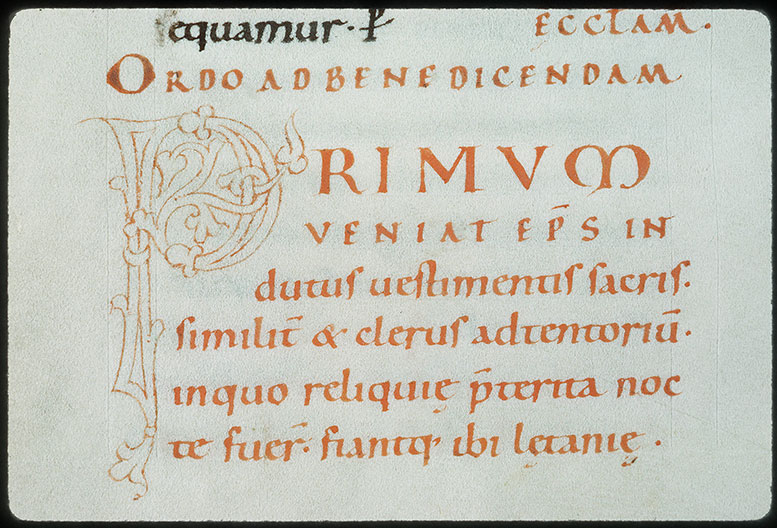 equamur · ꝑ ECCLAM .
ORDO AD BENEDICENDAM
PRIMUM
VENIAT EP̄S IN
dutus uestimentis sacris.
similit̄ & clerus adtentoriū.
inquo reliquię p̄terita noc
te fuer̄. fiantq; ibi lętanię .